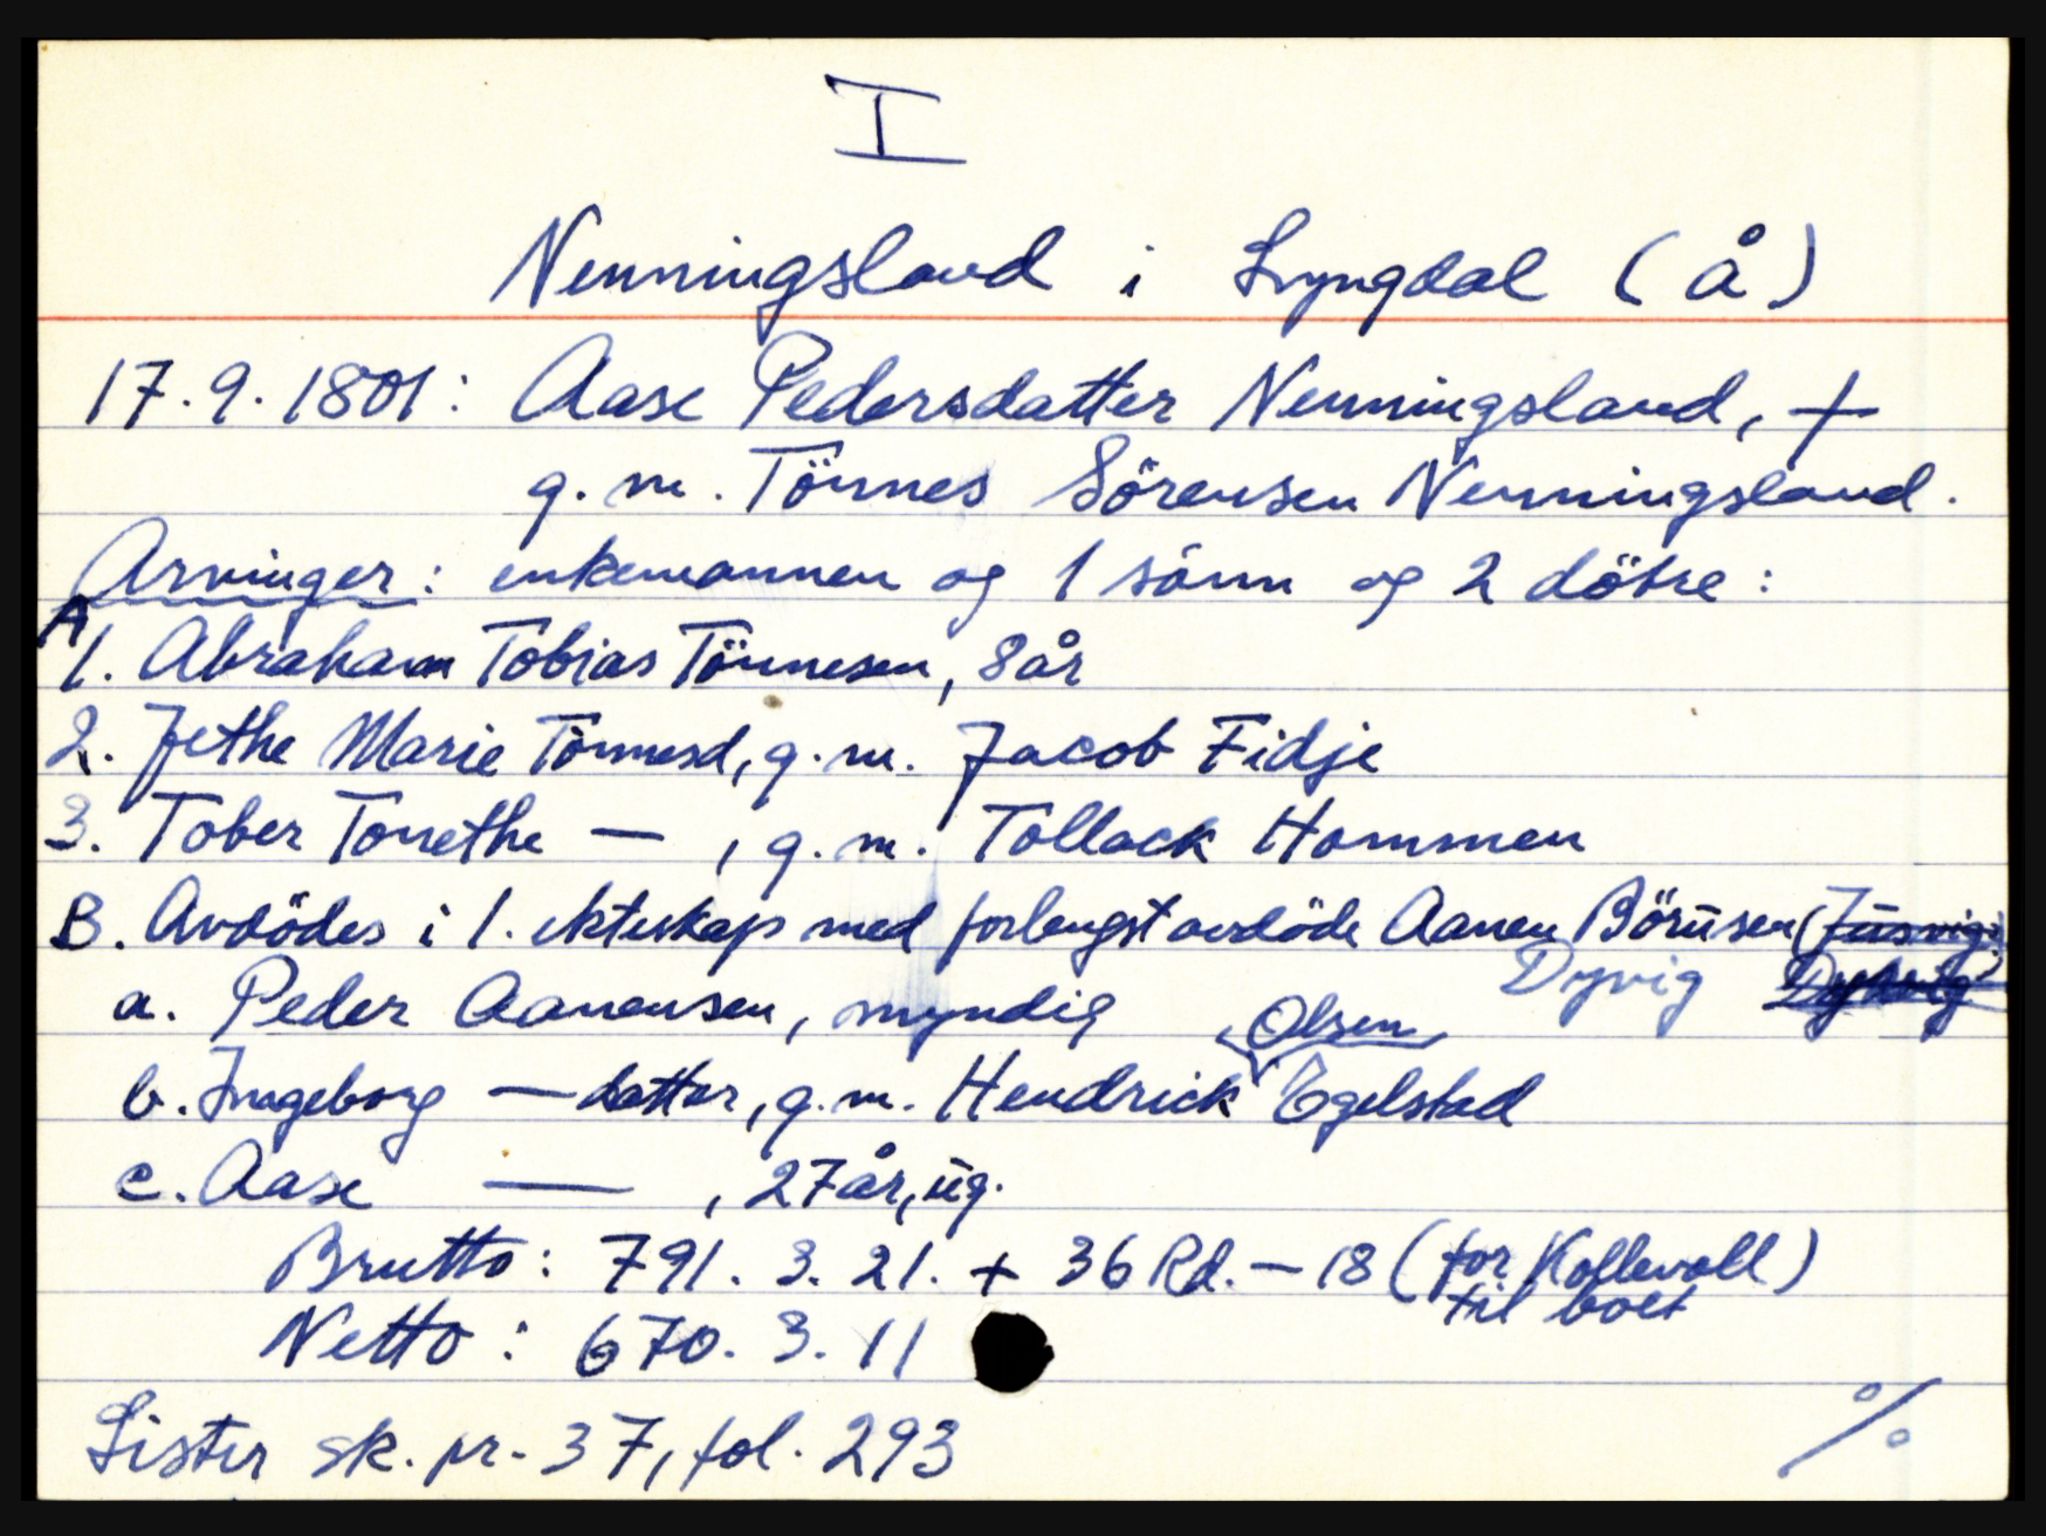 I
Nenningsland i Lyngdal (Å)
17.9.1801: Aase Pedersdatter Nenningsland, +
g.m. Tönnes Sörensen Nenningsland.
Arvinger: enkemannen og 1 sönn og 2 dötre:
A
1. Abraham Tobias Tönnesen, 8 år
2. Jethe Marie Tönnesd, g.m. Jacob Fidje
3. Tober Tonethe — , g.m. Tollack Hommen
B. Avdödes i 1. ekteskap med forlengst avdöde Aanen Börusen (
Dyvig
a. Peder Aanensen, myndig
Olsen
b. Ingeborg — datter, g.m. Hendrick Egelstad
c. Aase — , 27 år, ug.
Brutto: 791. 3. 21. + 36 Rd. - 18 (for Kollevoll)
til boet
Netto: 670. 3. 11
Lister sk.pr. 37, fol. 293
%